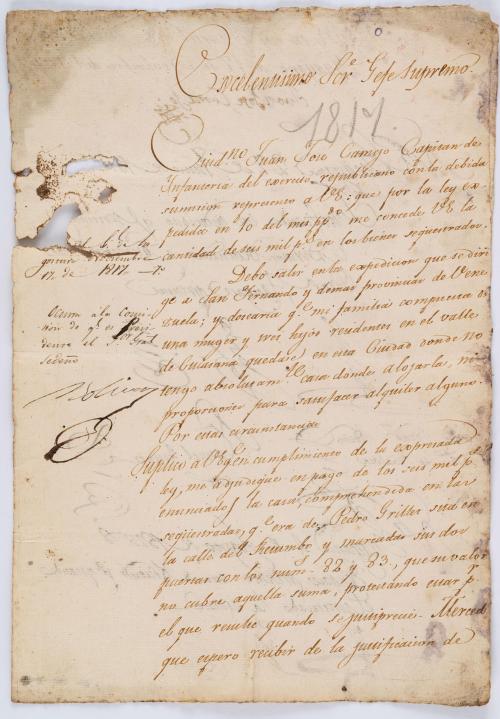 Excelentissimo Sor. Jefe Supremo.
1817.
Ciudno. Juan José Camejo Capitan de
Infanteria del exercito republicano con la debida
sumision represento a V.E: que por la ley ex-
pedida en 10 del mes ppdo. me concede V.E. la
cantidad de seis mil ps. en los bienes seqüestrados.
Debo salir en la expedicion que se diri
ge a San Fernando y demas provincias de Vene
zuela; y desearia qe. mi familia compuesta de
una muger y tres hijos residentes en el valle
de Guiana quedase en esta Ciudad donde no
tengo absolutamte. casa dónde alojarla, ni
proporciones para satisfacer alquiler alguno.
Por estas circunstancias
Suplico a V.E. qe. en cumplimiento de la expresada
ley, me adjudique en pago de los seis mil ps.
enunciados la casa, comprehendida en las
seqüestradas, qe. era de Pedro Grillet sita en
la calle de y marcadas sus dos
puertas con los nums. 82 y 83., que su valor
no cubre aquella suma, protestando estar pr.
el que resulte quando se justiprecie. Merced
que espero recibir de la justificacion de
Diciembre
17 de 1817 — 7o
Ocurra a la Comi
sion de qe. es Presi
dente el Sor. Gral
Sedeño
Bolivar